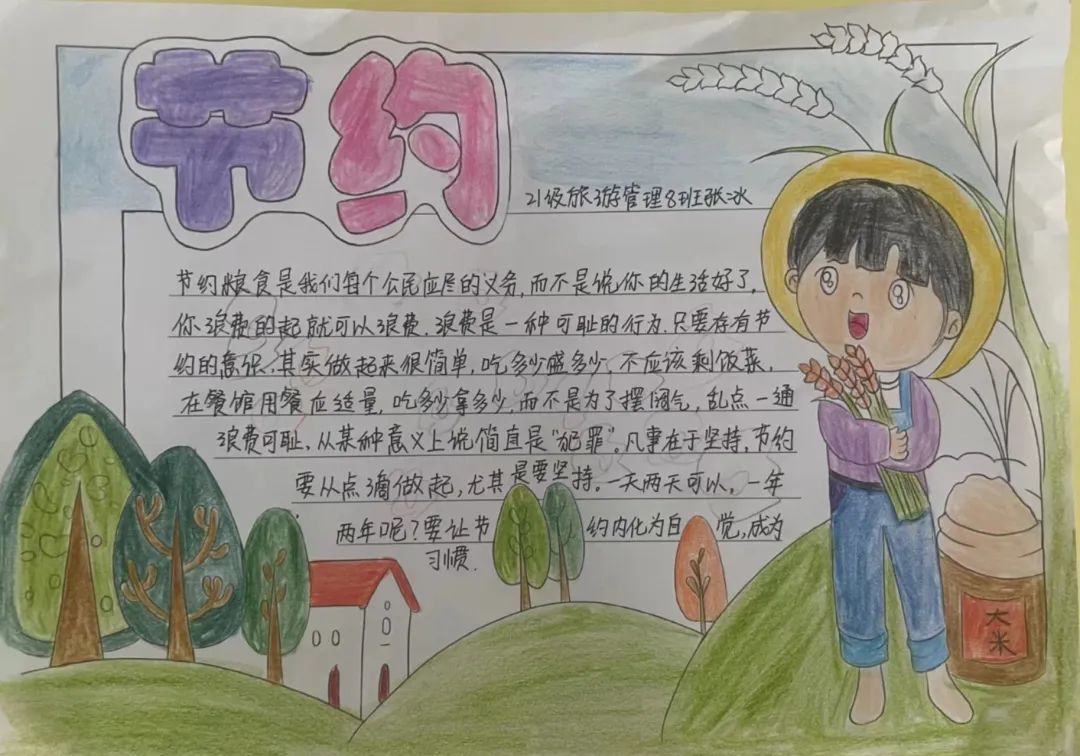 节约
21级旅游管理8班张冰
节约粮食是我们每个公民应尽的义务，而不是说你的生活好了，
你浪费的起就可以浪费．浪费是一种可耻的行为．只要存有节
约的意识，其实做起来很简单，吃多少盛多少，不应该剩饭菜．
在餐馆用餐应适量，吃多少拿多少，而不是为了摆阔气，乱点一通
浪费可耻，从某种意义上说简直是“犯罪”。凡事在于坚持，节约
要从点滴做起，尤其是要坚持。一天两天可以，一年
两年呢？要让节约内化为自觉，成为
习惯．
大米